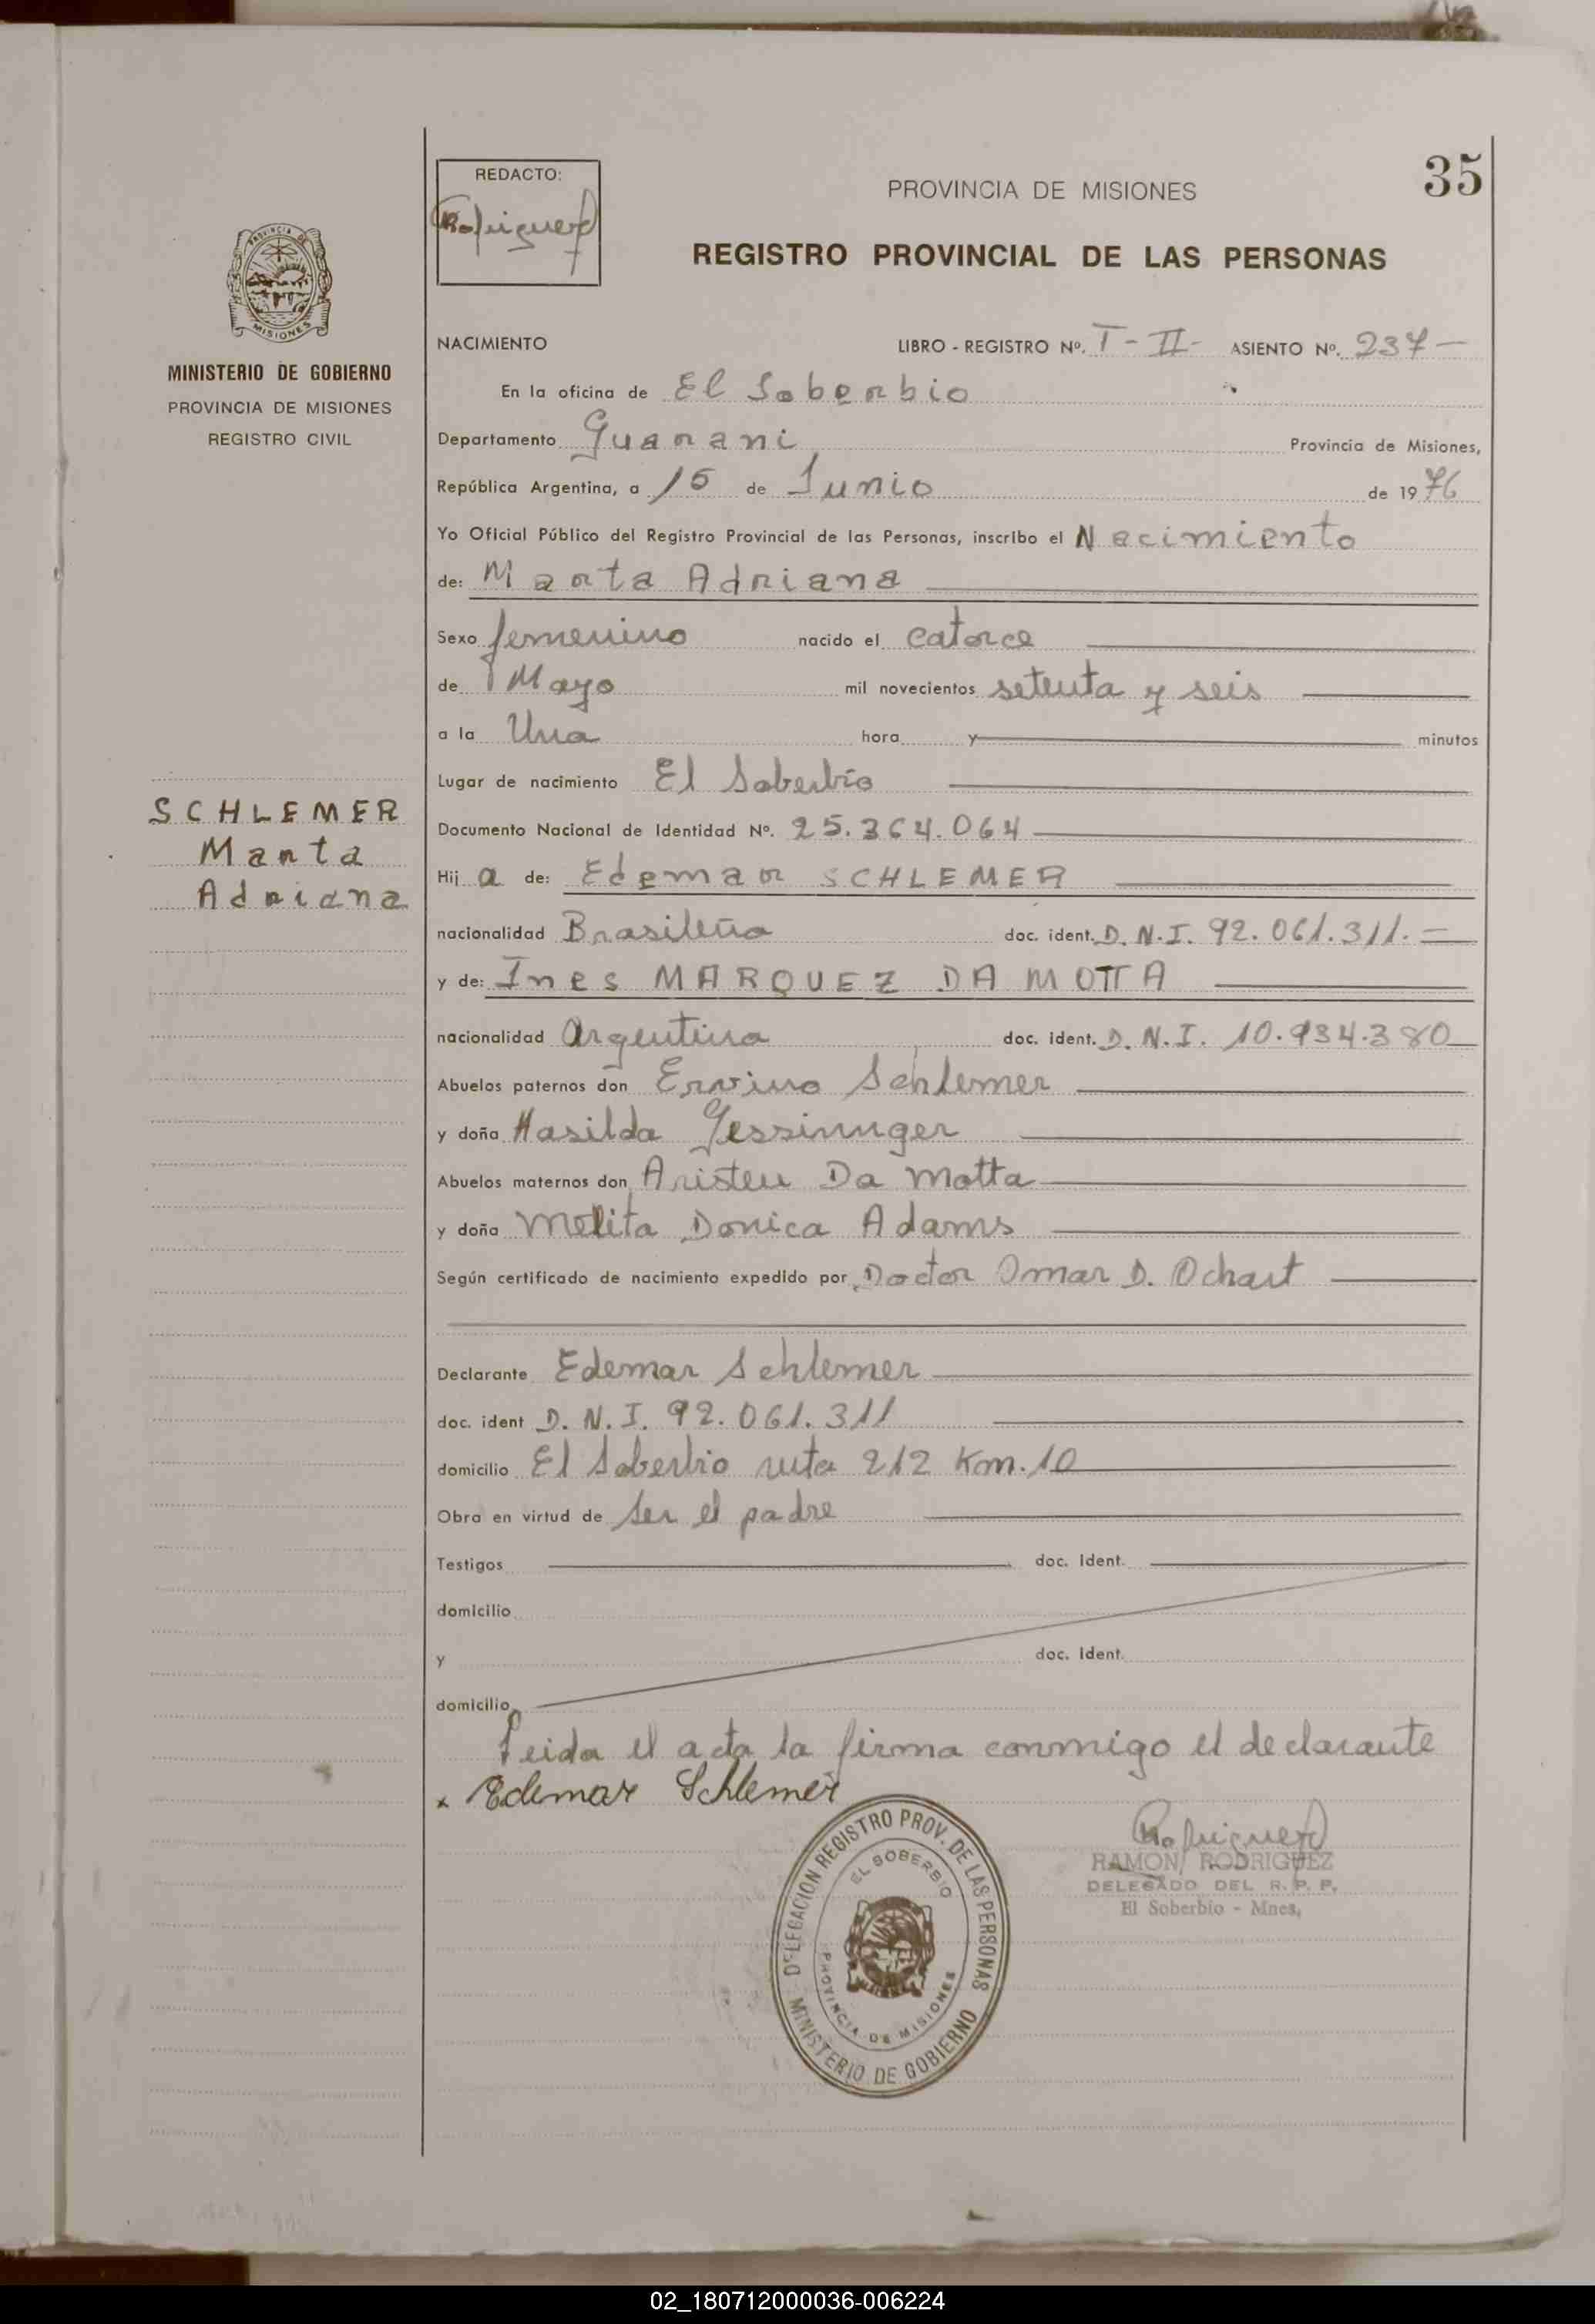 35
REDACTO:
Rodriguez
PROVINCIA DE MISIONES
REGISTRO PROVINCIAL DE LAS PERSONAS
PROVINCIA DE
MISIONES
MINISTERIO DE GOBIERNO
PROVINCIA DE MISIONES
REGISTRO CIVIL
SCHLEMER
Marta
Adriana
NACIMIENTO LIBRO - REGISTRO Nº. T - II - ASIENTO Nº. 237 -
En la oficina de El Soberbio
Departamento Guarani Provincia de Misiones,
República Argentina, a 15 de Junio de 1976
Yo Oficial Público del Registro Provincial de las Personas, inscribo el Nacimiento
de: Marta Adriana
Sexo femenino nacido el catorce
de Mayo mil novecientos setenta y seis
a la Una hora y minutos
Lugar de nacimiento El Soberbio
Documento Nacional de Identidad Nº. 25.364.064
Hij a de: Edemar SCHLEMER
nacionalidad Brasileña doc. ident. D.N.I. 92.061.311.=
y de: Ines MARQUEZ DA MOTTA
nacionalidad Argentina doc. ident. D.N.I. 10.934.380
Abuelos paternos don Ervino Schlemer
y doña Hasilda Gessinnger
Abuelos maternos don Aristeu Da Motta
y doña Melita Donica Adams
Según certificado de nacimiento expedido por Doctor Omar D. Ochart
Declarante Edemar Schlemer
doc. ident D.N.I. 92.061.311
domicilio El Soberbio ruta 212 Km. 10
Obra en virtud de ser el padre
Testigos doc. Ident.
domicilio
y doc. Ident.
domicilio
Leida el acta la firma conmigo el declarante
x Edemar Schlemer
DELEGACION REGISTRO PROV. DE LAS PERSONAS
MINISTERIO DE GOBIERNO
EL SOBERBIO
PROVINCIA DE MISIONES
Rodriguez
RAMON RODRIGUEZ
DELEGADO DEL R. P. P.
El Soberbio - Mnes,
02_180712000036-006224